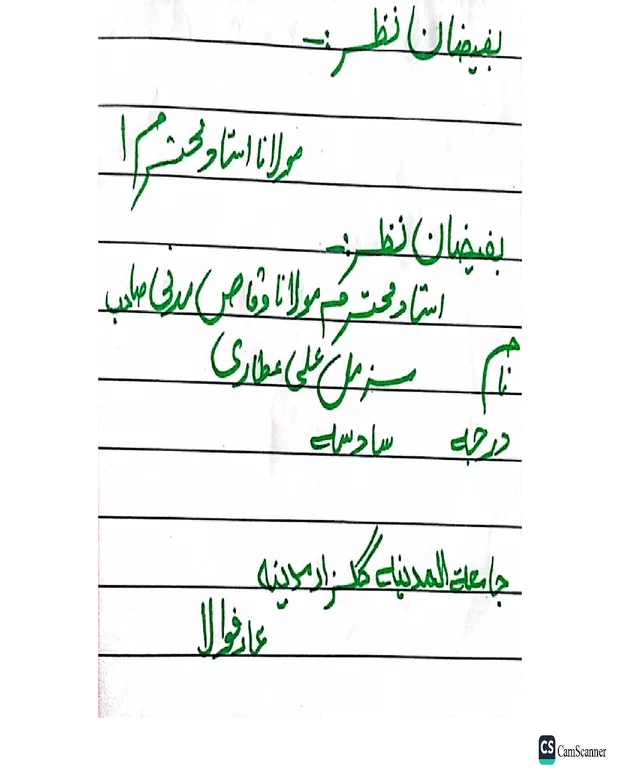 بفیضان نظر:۔
مولانا استاد محترم ا
بفیضان نظر:۔
استاد محترم مولانا وقاص مدنی صاحب
نام مزمل علی عطاری
درجہ سادسہ
جامعۃ المدینہ گلزار مدینہ
عارفوالا
CS CamScanner